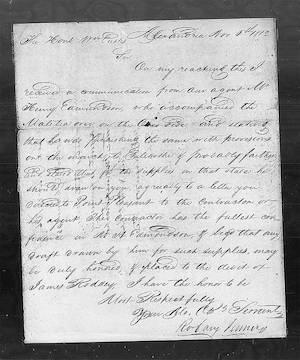 The Hon. Wm Eustis Alexandria Nov 4th 1812
Sir
On my reaching this I
received a communication from our agent Mr
Henry Edmundson, who accompanied the
Malitia over on the and stated
that he was furnishing the same with provisions
on the march to & probably farther
for the supplies in that state he
should draw on you agreeably to a letter you
Point Pleasant to the Contractor or
his agent. This Contractor has the fullest con
fidence in Mr H Edmondson, & begs that any
draft drawn by him for such supplies, may
be duly honored, & placed to the debet of
James Rodsey. I have the honor to be
Most Respectfully
Your Mo. Obt. Servant